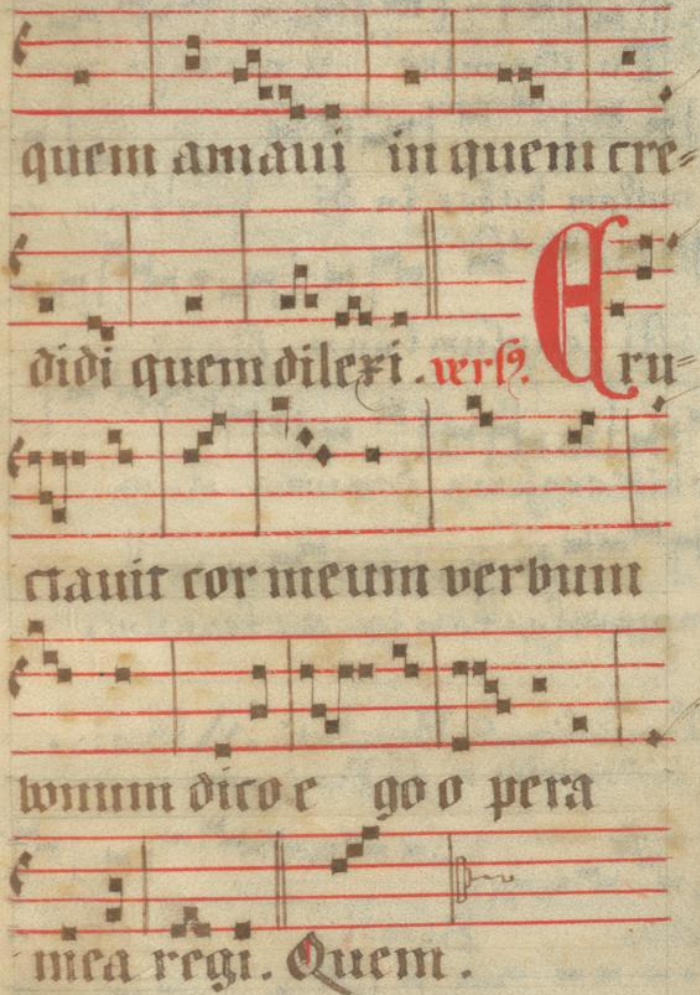 quem amaui in quem cre=
didi quem dilexi. versꝰ. Eru=
ctauit cor meum verbum
bonum dico ego opera
mea regi. Quem.